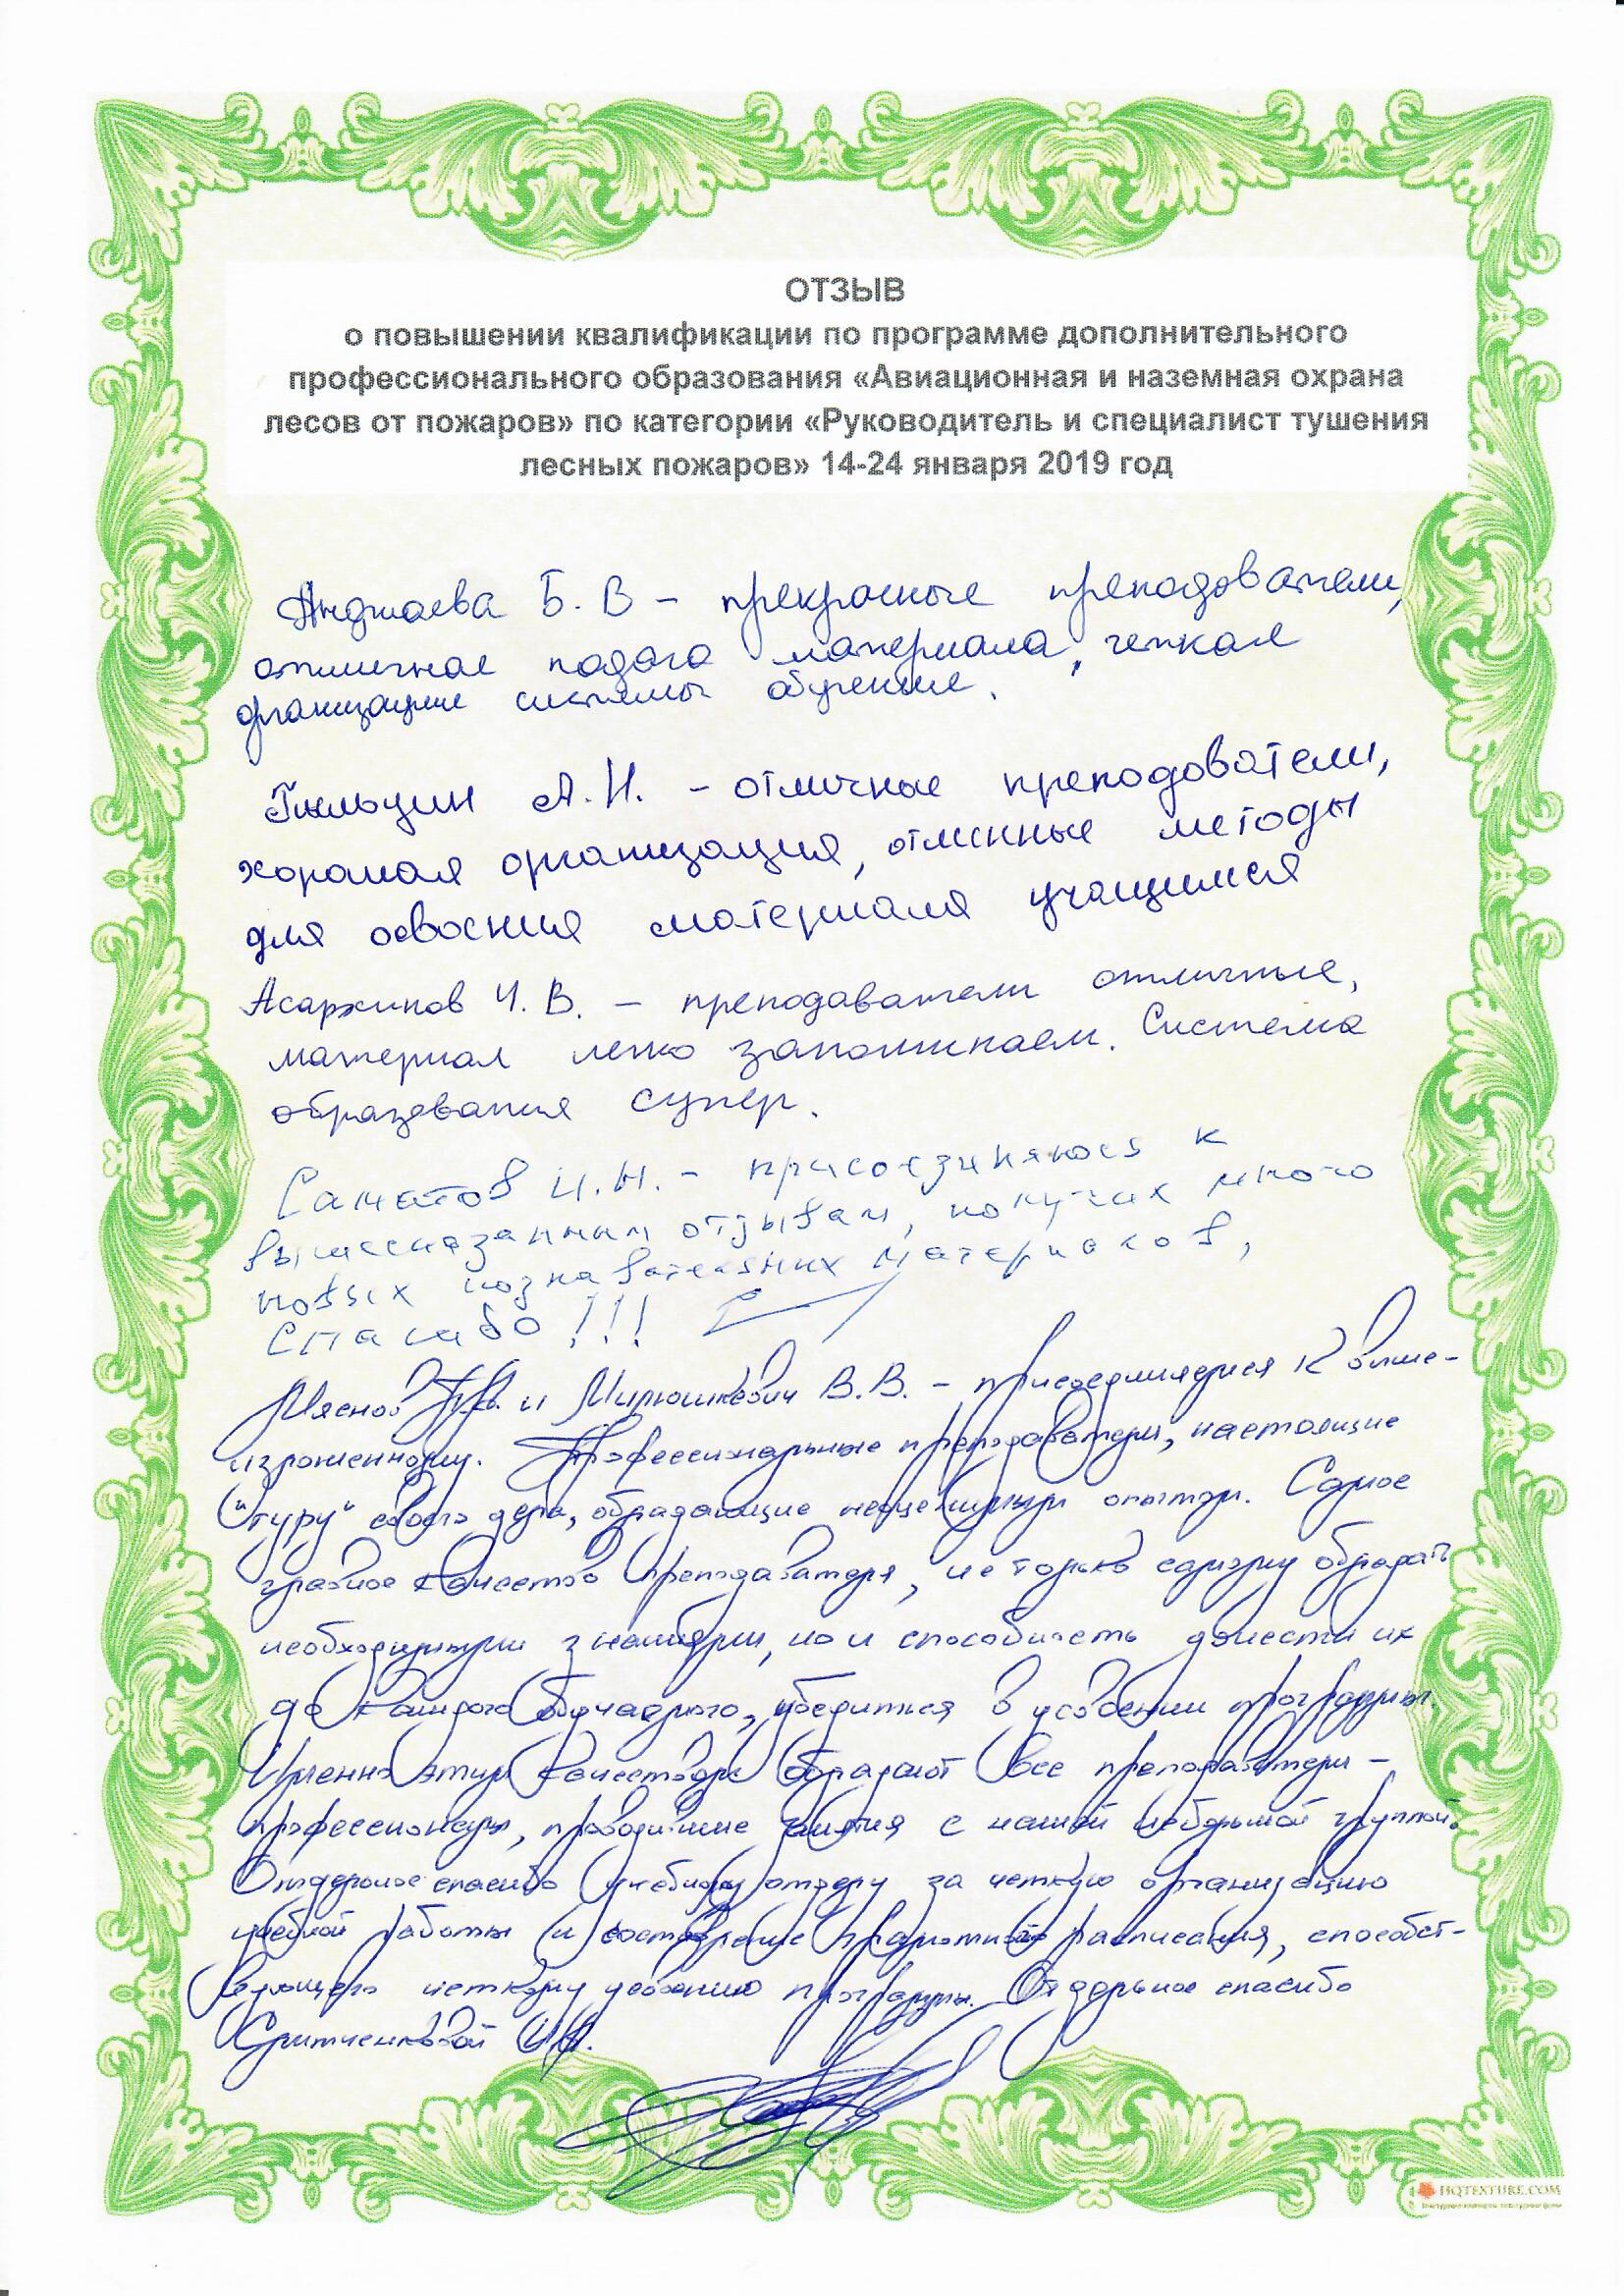 ОТЗЫВ
о повышении квалификации по программе дополнительного
профессионального образования «Авиационная и наземная охрана
лесов от пожаров» по категории «Руководитель и специалист тушения
лесных пожаров» 14-24 января 2019 год
Анджаева Б. В – прекрасные преподаватели,
отличная подача материала, четкая
организация системы обучения.
А.Н. – отличные преподователи,
хорошая организация, отличные методы
для освоения материала учащимися
Асаржинов Ч. В. – преподаватели отличные,
материал легко запоминаем. Система
образования супер.
Саматов И.Н. – присоединяюсь к
вышесказанным отзывам, получил много
новых познавательных материалов,
Спасибо!!!
Мяснов и Милюшкевич В.В. – присоединяемся к выше-
изложенному. Профессиональные преподаватели, настоящие
"гуру" своего дела, обладающие неоценимым опытом. Самое
главное качество преподавателя, не только самому обладать
необходимыми знаниями, но и способность донести их
до каждого обучаемого, убедиться в усвоении программы.
Именно этим качеством обладают все преподаватели –
профессионалы, проводившие занятия с нашей небольшой группой.
Отдельное спасибо учебному отделу за четкую организацию
учебной работы и составление грамотного расписания, способст-
вующего четкому усвоению программы. Отдельное спасибо
HQTEXTURE.COM